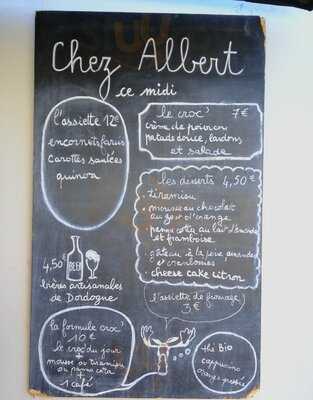 Chez Albert
ce midi
l'assiette 12€
encornets farcis
carottes sautées
quinoa
le croc' 7€
crème de poivron
patate douce, lardons
et salade
les desserts 4,50€
• tiramisu
• mousse au chocolat
au goût d'orange
• panna cotta au lait d'amande
et framboise
• gâteau à la poire amandes
et cranberries
• cheese cake citron
4,50€
BEER
bières artisanales
de Dordogne
l'assiette de fromage
3€
la formule croc'
10€
le croc' du jour
+
mousse ou tiramisu
ou panna cotta
+
1 café
thé Bio
cappuccino
orange pressée